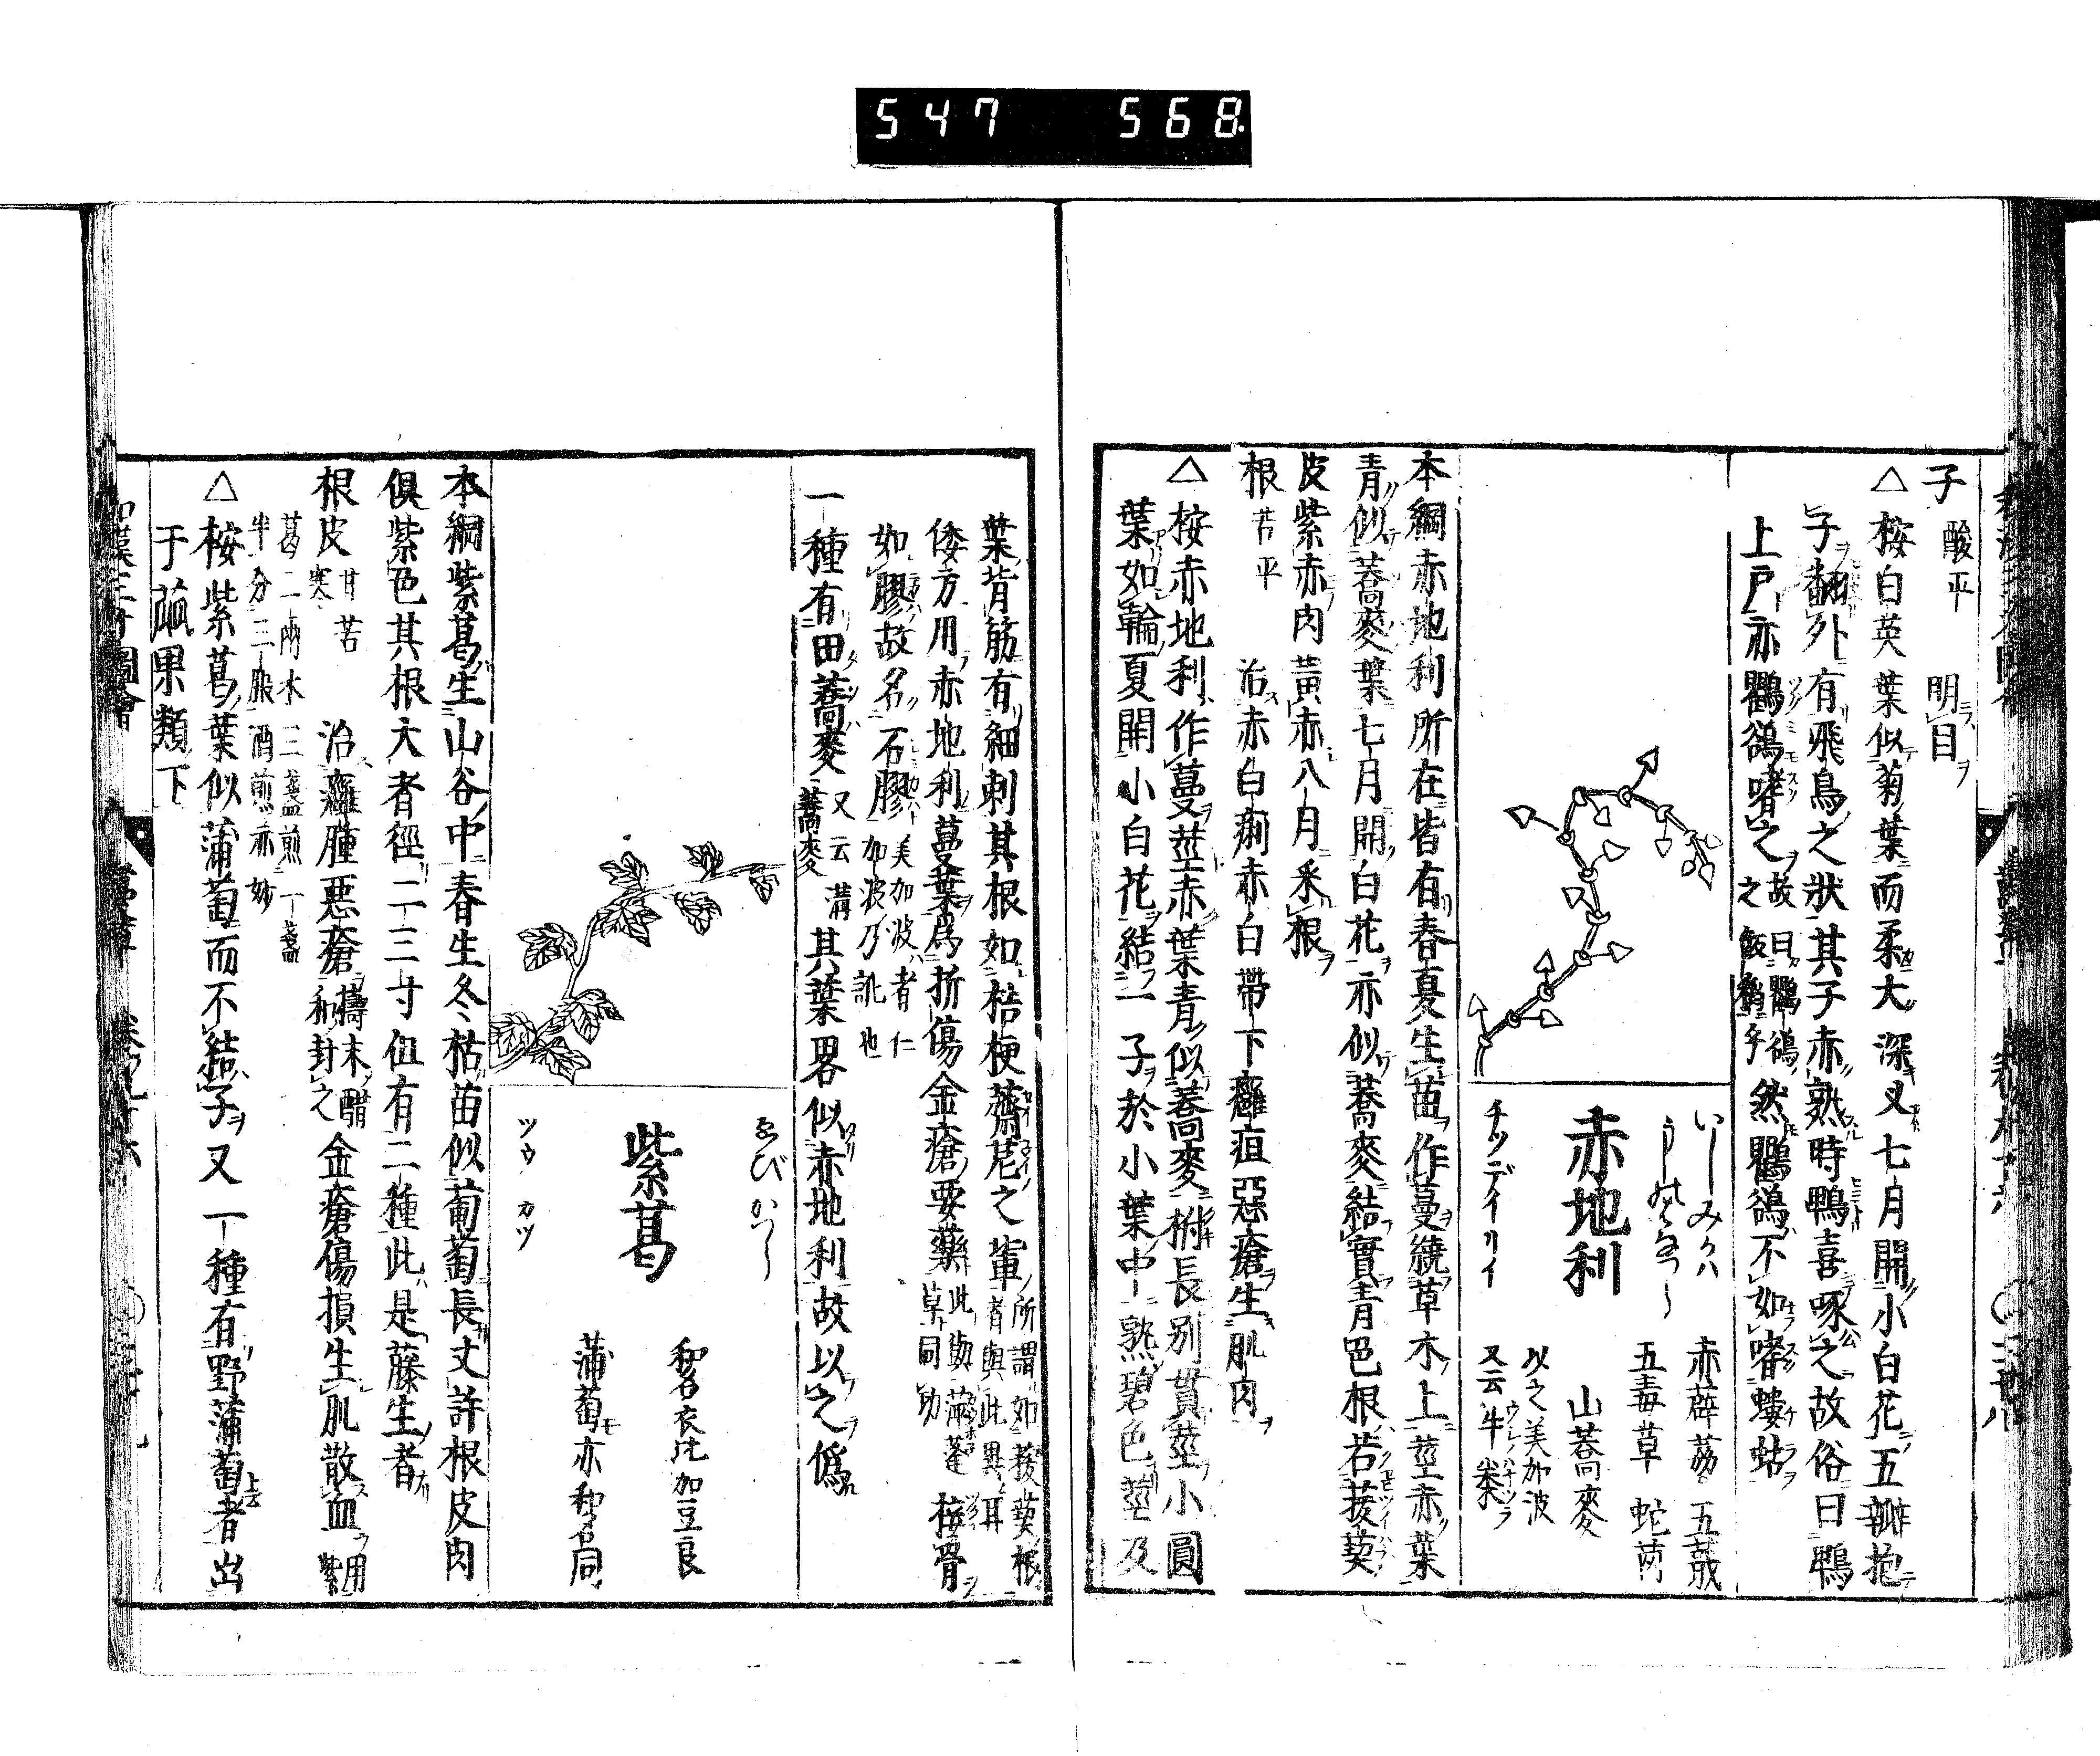 547 568
子 酸平 明目
△桉白英葉似菊葉而柔大深又七月開小白花五瓣抱
子翻外有飛鳥之狀其子赤熟時鴨喜啄之故俗曰鴨
上戸亦鸜鵒嗜之故曰鸜鵒之飯 然鸜鵒不如嗜螻蛄
赤地利
いしみかは
チツデイリイ
赤薜荔 五蕺
五毒草 蛇䓈
山蕎麥
以之美加波
又云牛
本綱赤地利所在皆有春夏生苗作蔓繞草木上莖赤葉
青似蕎麥葉七月開白花亦似蕎麥結實青色根若菝葜
皮紫赤肉黃赤八月釆根
根 苦平 治赤白痢赤白帶下癰疽惡瘡生肌肉
△桉赤地利作蔓莖赤葉青似蕎麥柎長別貫莖小圓
葉如輪夏開小白花結一子於小葉中熟碧色莖及
葉背筋有細刺其根如桔梗薺苨之軰所謂如菝葜根者與此異耳
倭方用赤地利蔓葉爲折傷金瘡要藥 接骨
如膠故名石膠美加波者仁加波乃訛也
一種有田蕎麥又云溝蕎麥其葉畧似赤地利故以之僞
紫葛
ゑびかつら
ツウ カツ
和名衣比加豆良
蒲萄亦和名同
本綱紫葛生山谷中春生冬枯苗似葡萄長丈許根皮肉
俱紫色其根大者徑二三寸但有二種此是藤生者
根皮 甘苦寒 治癰腫惡瘡擣末醋和封之金瘡傷損生肌散血用紫
葛二兩水三盞煎一盞
半分三服酒煎亦妙
△桉紫葛葉似蒲萄而不結子又一種有野蒲萄者出
于蓏果類下